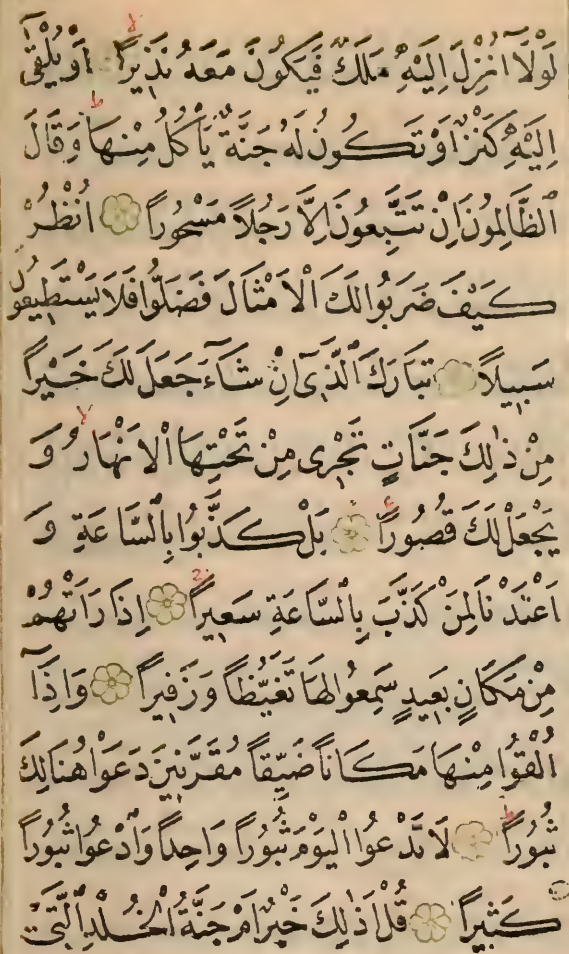 لَوْلَآ اُنْزِلَ اِلَيْهِ مَلَكٌ فَيَكُونَ مَعَهُ نَذِيرًاۙ اَوْ يُلْقٰٓى
اِلَيْهِ كَنْزٌ اَوْ تَكُونُ لَهُ جَنَّةٌ يَأْكُلُ مِنْهَاۜ وَقَالَ
ٱلظَّالِمُونَ اِنْ تَتَّبِعُونَ اِلَّا رَجُلًا مَسْحُورًا اُنْظُرْ
كَيْفَ ضَرَبُوا لَكَ ٱلْاَمْثَالَ فَضَلُّوا فَلَا يَسْتَطِيعُونَ
سَبِيلًا تَبَارَكَ ٱلَّذِىٓ اِنْ شَآءَ جَعَلَ لَكَ خَيْرًا
مِنْ ذٰلِكَ جَنَّاتٍ تَجْرِى مِنْ تَحْتِهَا ٱلْاَنْهَارُۙ وَ
يَجْعَلْ لَكَ قُصُورًا بَلْ كَذَّبُوا بِٱلسَّاعَةِ وَ
اَعْتَدْنَا لِمَنْ كَذَّبَ بِٱلسَّاعَةِ سَعِيرًا اِذَا رَاَتْهُمْ
مِنْ مَكَانٍ بَعِيدٍ سَمِعُوا لَهَا تَغَيُّظًا وَزَفِيرًا وَاِذَآ
اُلْقُوا مِنْهَا مَكَانًا ضَيِّقًا مُقَرَّنِينَ دَعَوْا هُنَالِكَ
ثُبُورًاۜ لَا تَدْعُوا ٱلْيَوْمَ ثُبُورًا وَاحِدًا وَٱدْعُوا ثُبُورًا
كَثِيرًا قُلْ اَذٰلِكَ خَيْرٌ اَمْ جَنَّةُ ٱلْخُلْدِ ٱلَّتِى